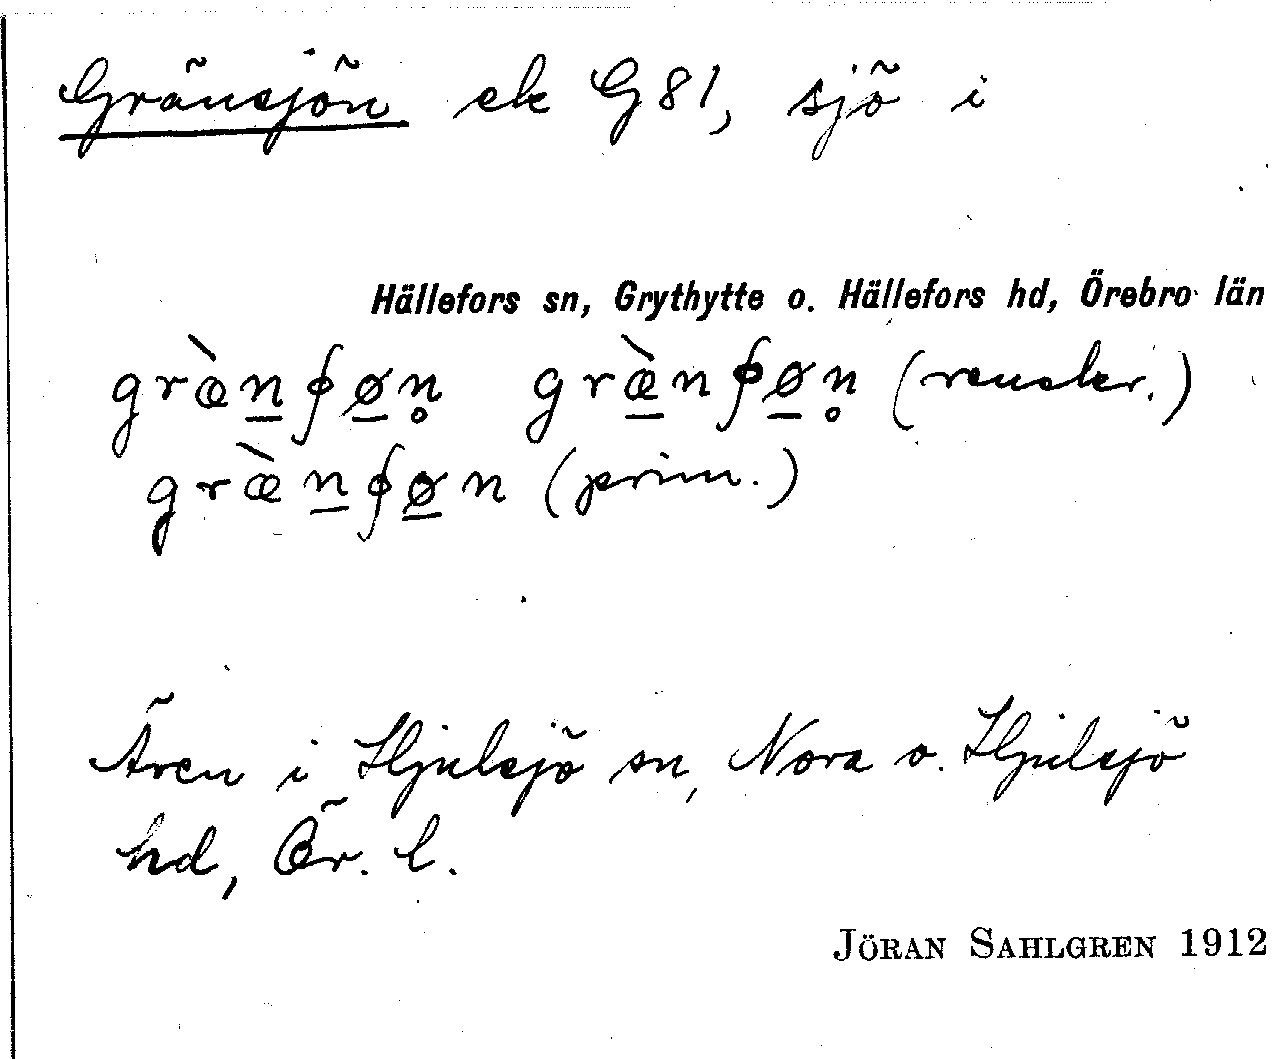 Gränsjön ek G 81, sjö i
Hällefors sn, Grythytte o. Hällefors hd, Örebro län
græ̀n̲ʃø̲n̥ græ̲̀nʃø̲n̥ (renskr.)
græ̀n̲ʃø̲n (prim.)
Även i Hjulsjö sn, Nora o. Hjulsjö
hd, Ör. l.
JÖRAN SAHLGREN 1912